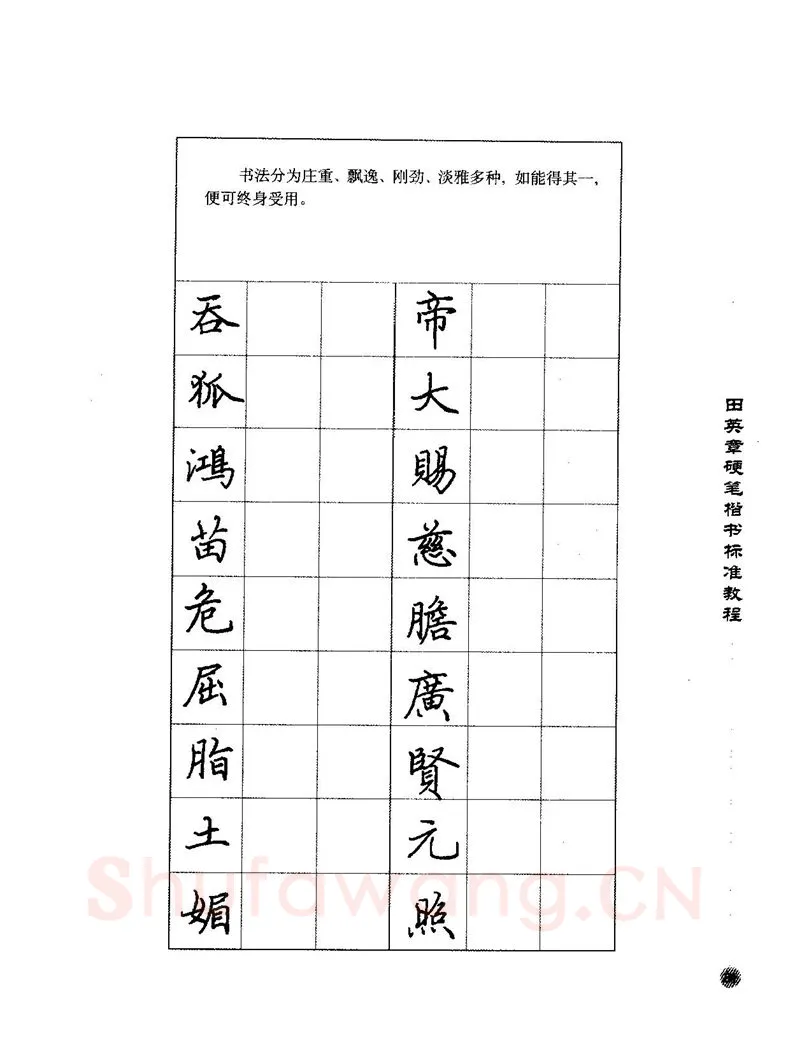 书法分为庄重、飘逸、刚劲、淡雅多种，如能得其一，
便可终身受用。
吞 帝
狐 大
鴻 賜
苗 慈
危 膽
屈 廣
脂 賢
土 元
媚 照
田英章硬笔楷书标准教程
Shufawang.CN